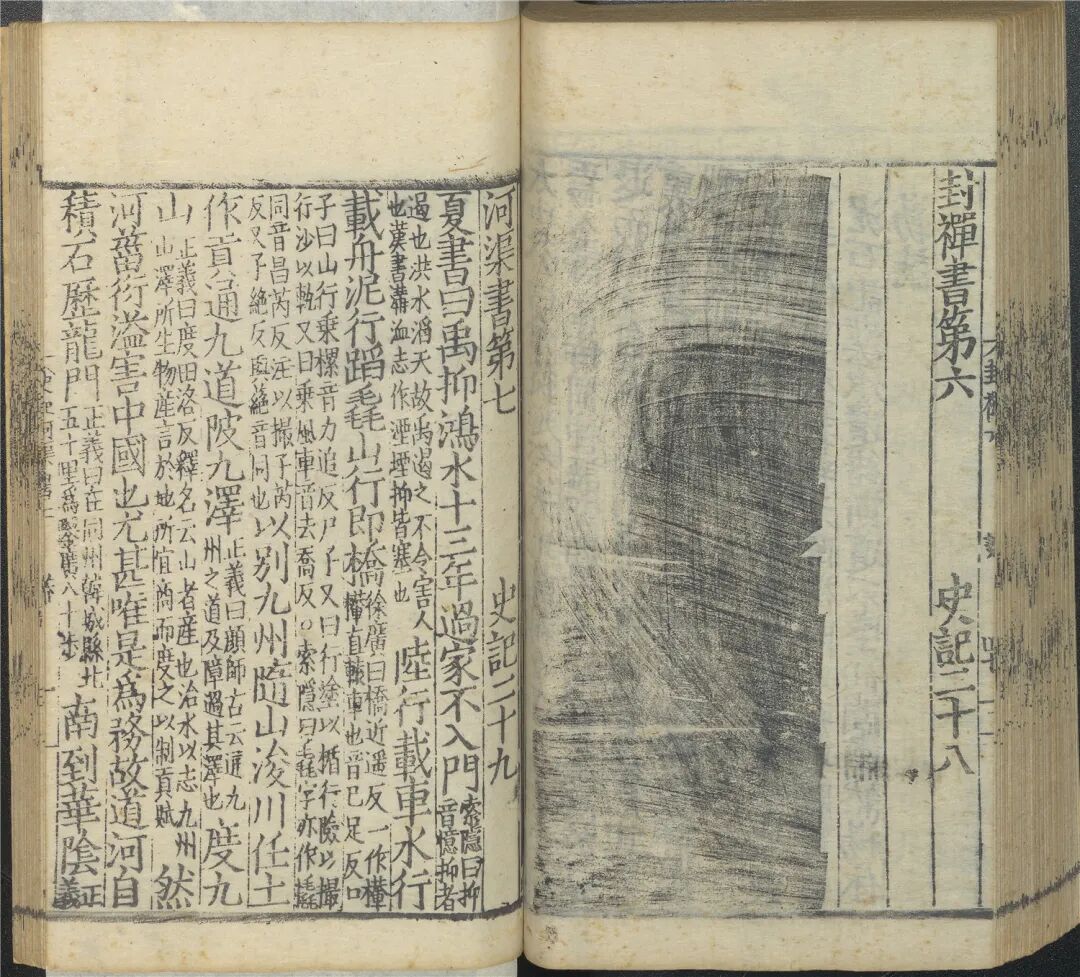 封禪書第六 史記二十八
河渠書第七 史記二十九
夏書曰禹抑鴻水十三年過家不入門 索隱曰抑音憶抑者
遏也洪水滔天故禹遏之不令害人也漢書溝洫志作湮堙抑皆塞也 陸行載車水行
載舟泥行蹈毳山行即橋 徐廣曰橋近遥反一作檋檋直轅車也音已足反尸
子曰山行乘樏音力追反尸子又曰行塗以楯行險以撮行沙以軌又曰乘風車音去喬反○索隱曰毳字亦作橇
同音昌芮反注以撮子芮反又子絶反與蕝音同也 以別九州隨山浚川任土
作貢通九道陂九澤 正義曰顔師古云通九州之道及障遏其澤也 度九
山 正義曰度田洛反釋名云山者産也治水以志九州山澤所生物産言於地所宜商而度之以制貢賦 然
河菑衍溢害中國也尤甚唯是爲務故道河自
積石歷龍門 正義曰在同州韓城縣北五十里爲鑿廣八十步 南到華陰 正義